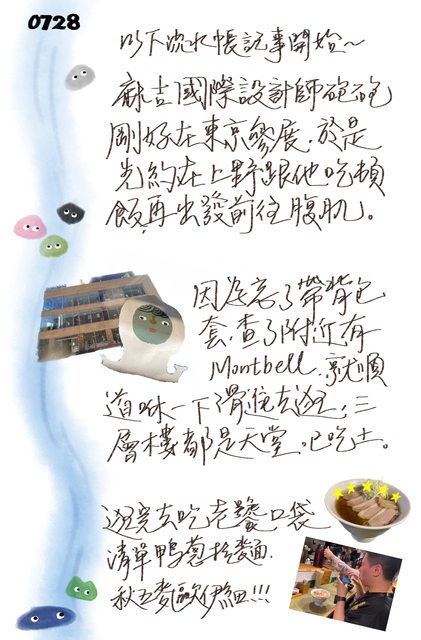 0728
以下流水帳記事開始～
麻吉國際設計師砲砲
剛好在東京參展，於是
先約在上野跟他吃頓
飯再出發前往腹肌。
因為忘了帶背包
套，查了附近有
Montbell，就順
道咻一下滑進去逛，三
層樓都是天堂，已吃土。
逛完去吃老饕口袋
清單鴨蔥拉麵.
秋五麥歐伊細!!!